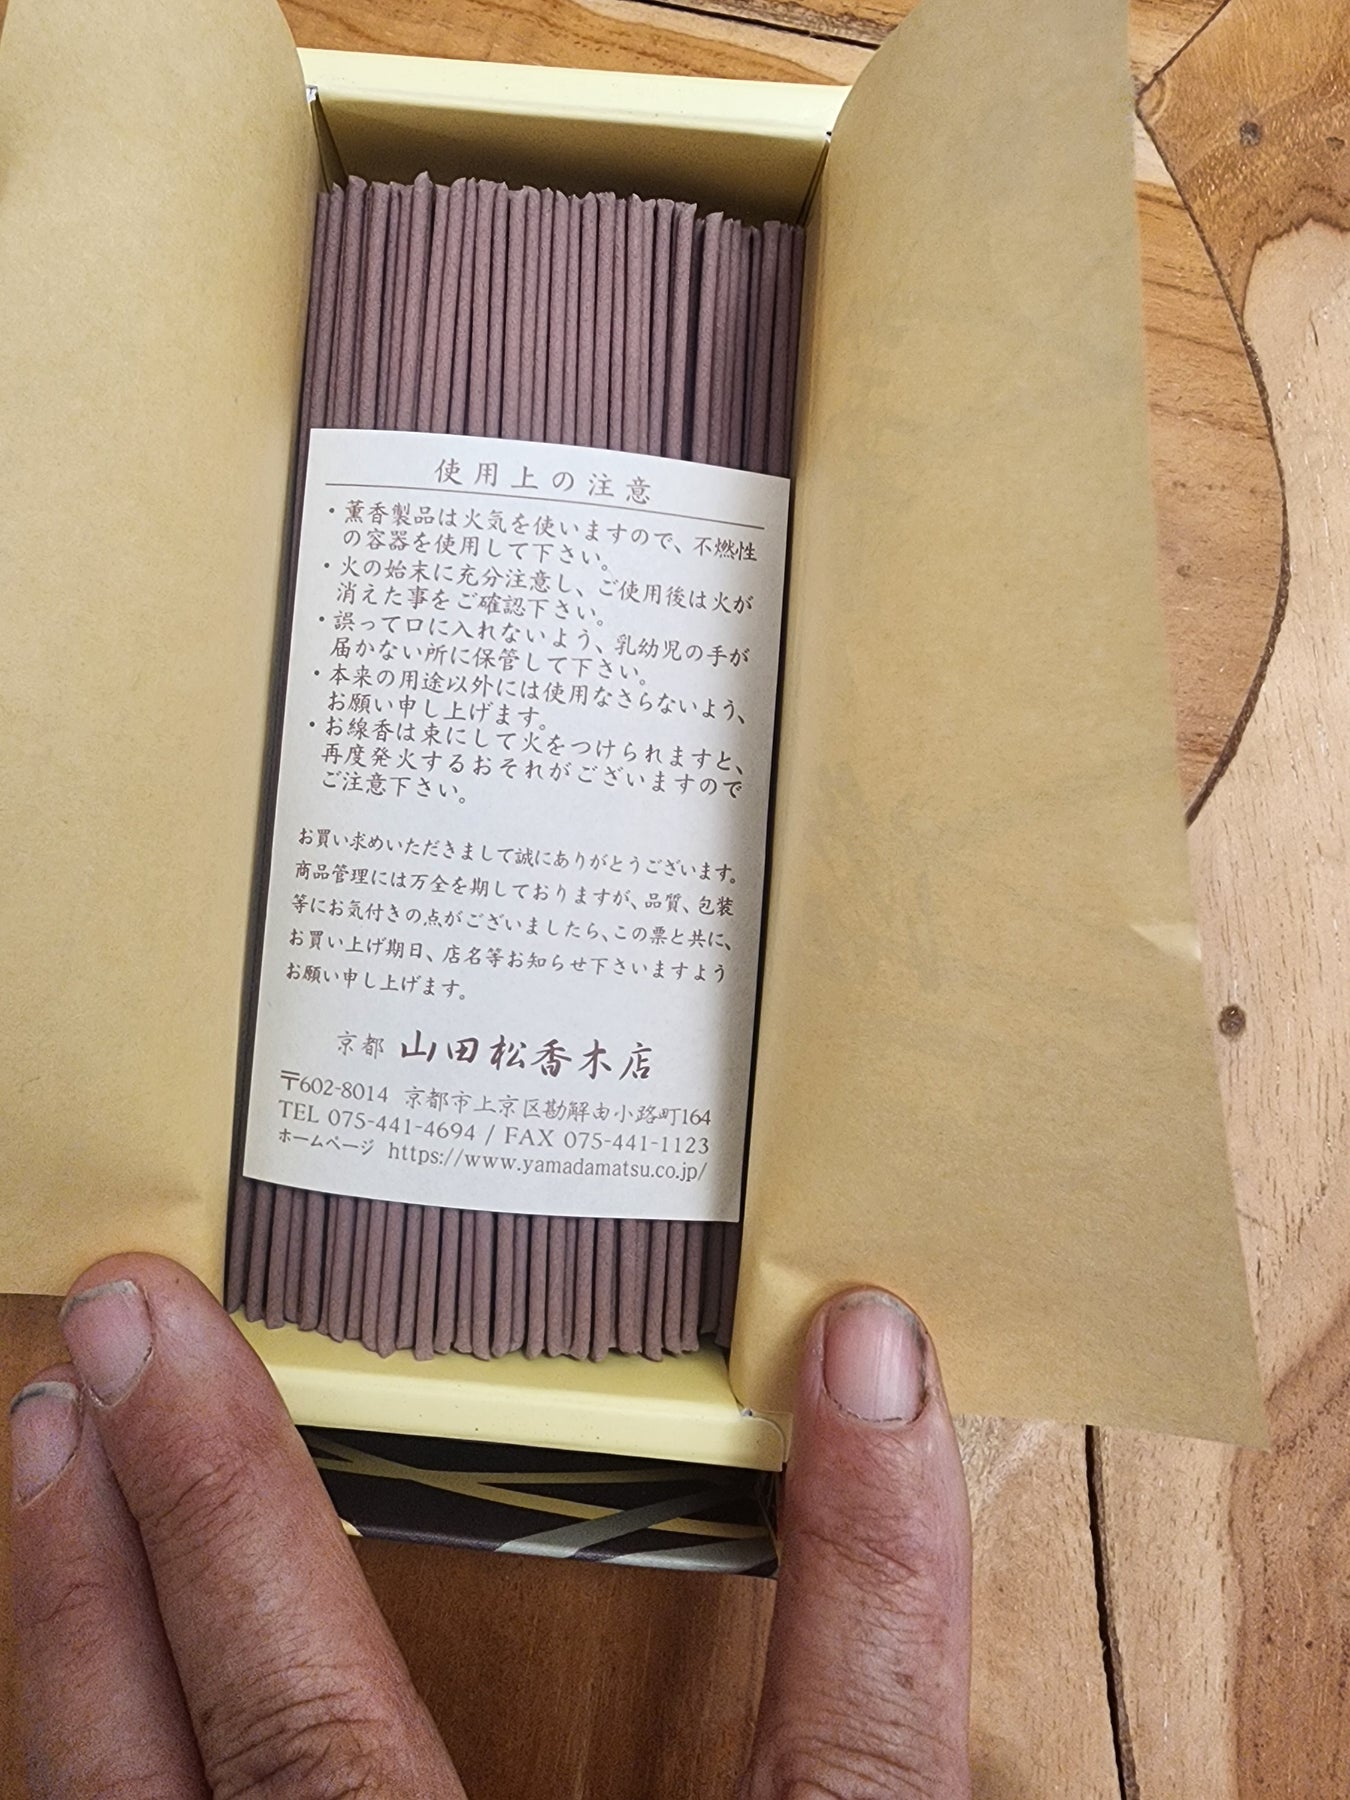 使用上の注意
・薫香製品は火気を使いますので、不燃性
の容器を使用して下さい。
・火の始末に充分注意し、ご使用後は火が
消えた事をご確認下さい。
・誤って口に入れないよう、乳幼児の手が
届かない所に保管して下さい。
・本来の用途以外には使用なさらないよう、
お願い申し上げます。
・お線香は束にして火をつけられますと、
再度発火するおそれがございますので
ご注意下さい。
お買い求めいただきまして誠にありがとうございます。
商品管理には万全を期しておりますが、品質、包装
等にお気付きの点がございましたら、この票と共に、
お買い上げ期日、店名等お知らせ下さいますよう
お願い申し上げます。
京都 山田松香木店
〒602-8014 京都市上京区勘解由小路町164
TEL 075-441-4694 / FAX 075-441-1123
ホームページ https://www.yamadamatsu.co.jp/